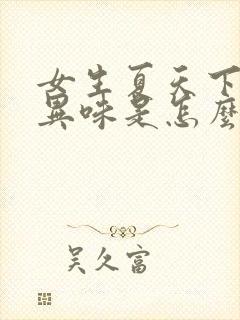 女生夏天下
異味是怎麼
吴久富